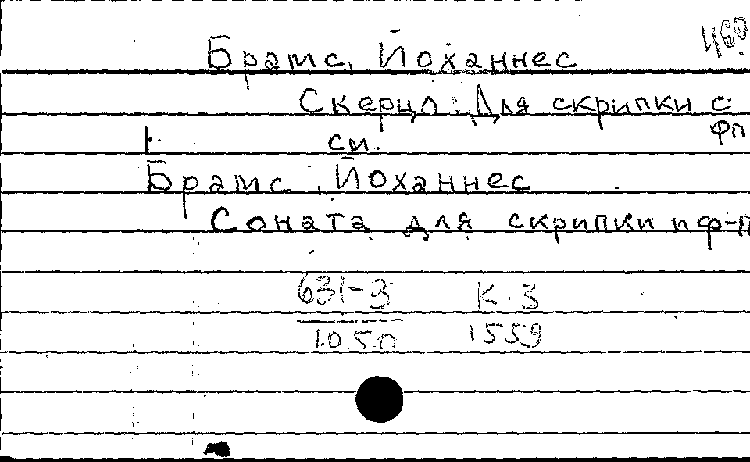 460
Брамс, Йоханнес
Скерцо: Для скрипки с
фп
см.
Брамс, Йоханнес
Соната для скрипки и ф-п
631-3 К.3
1050 1559